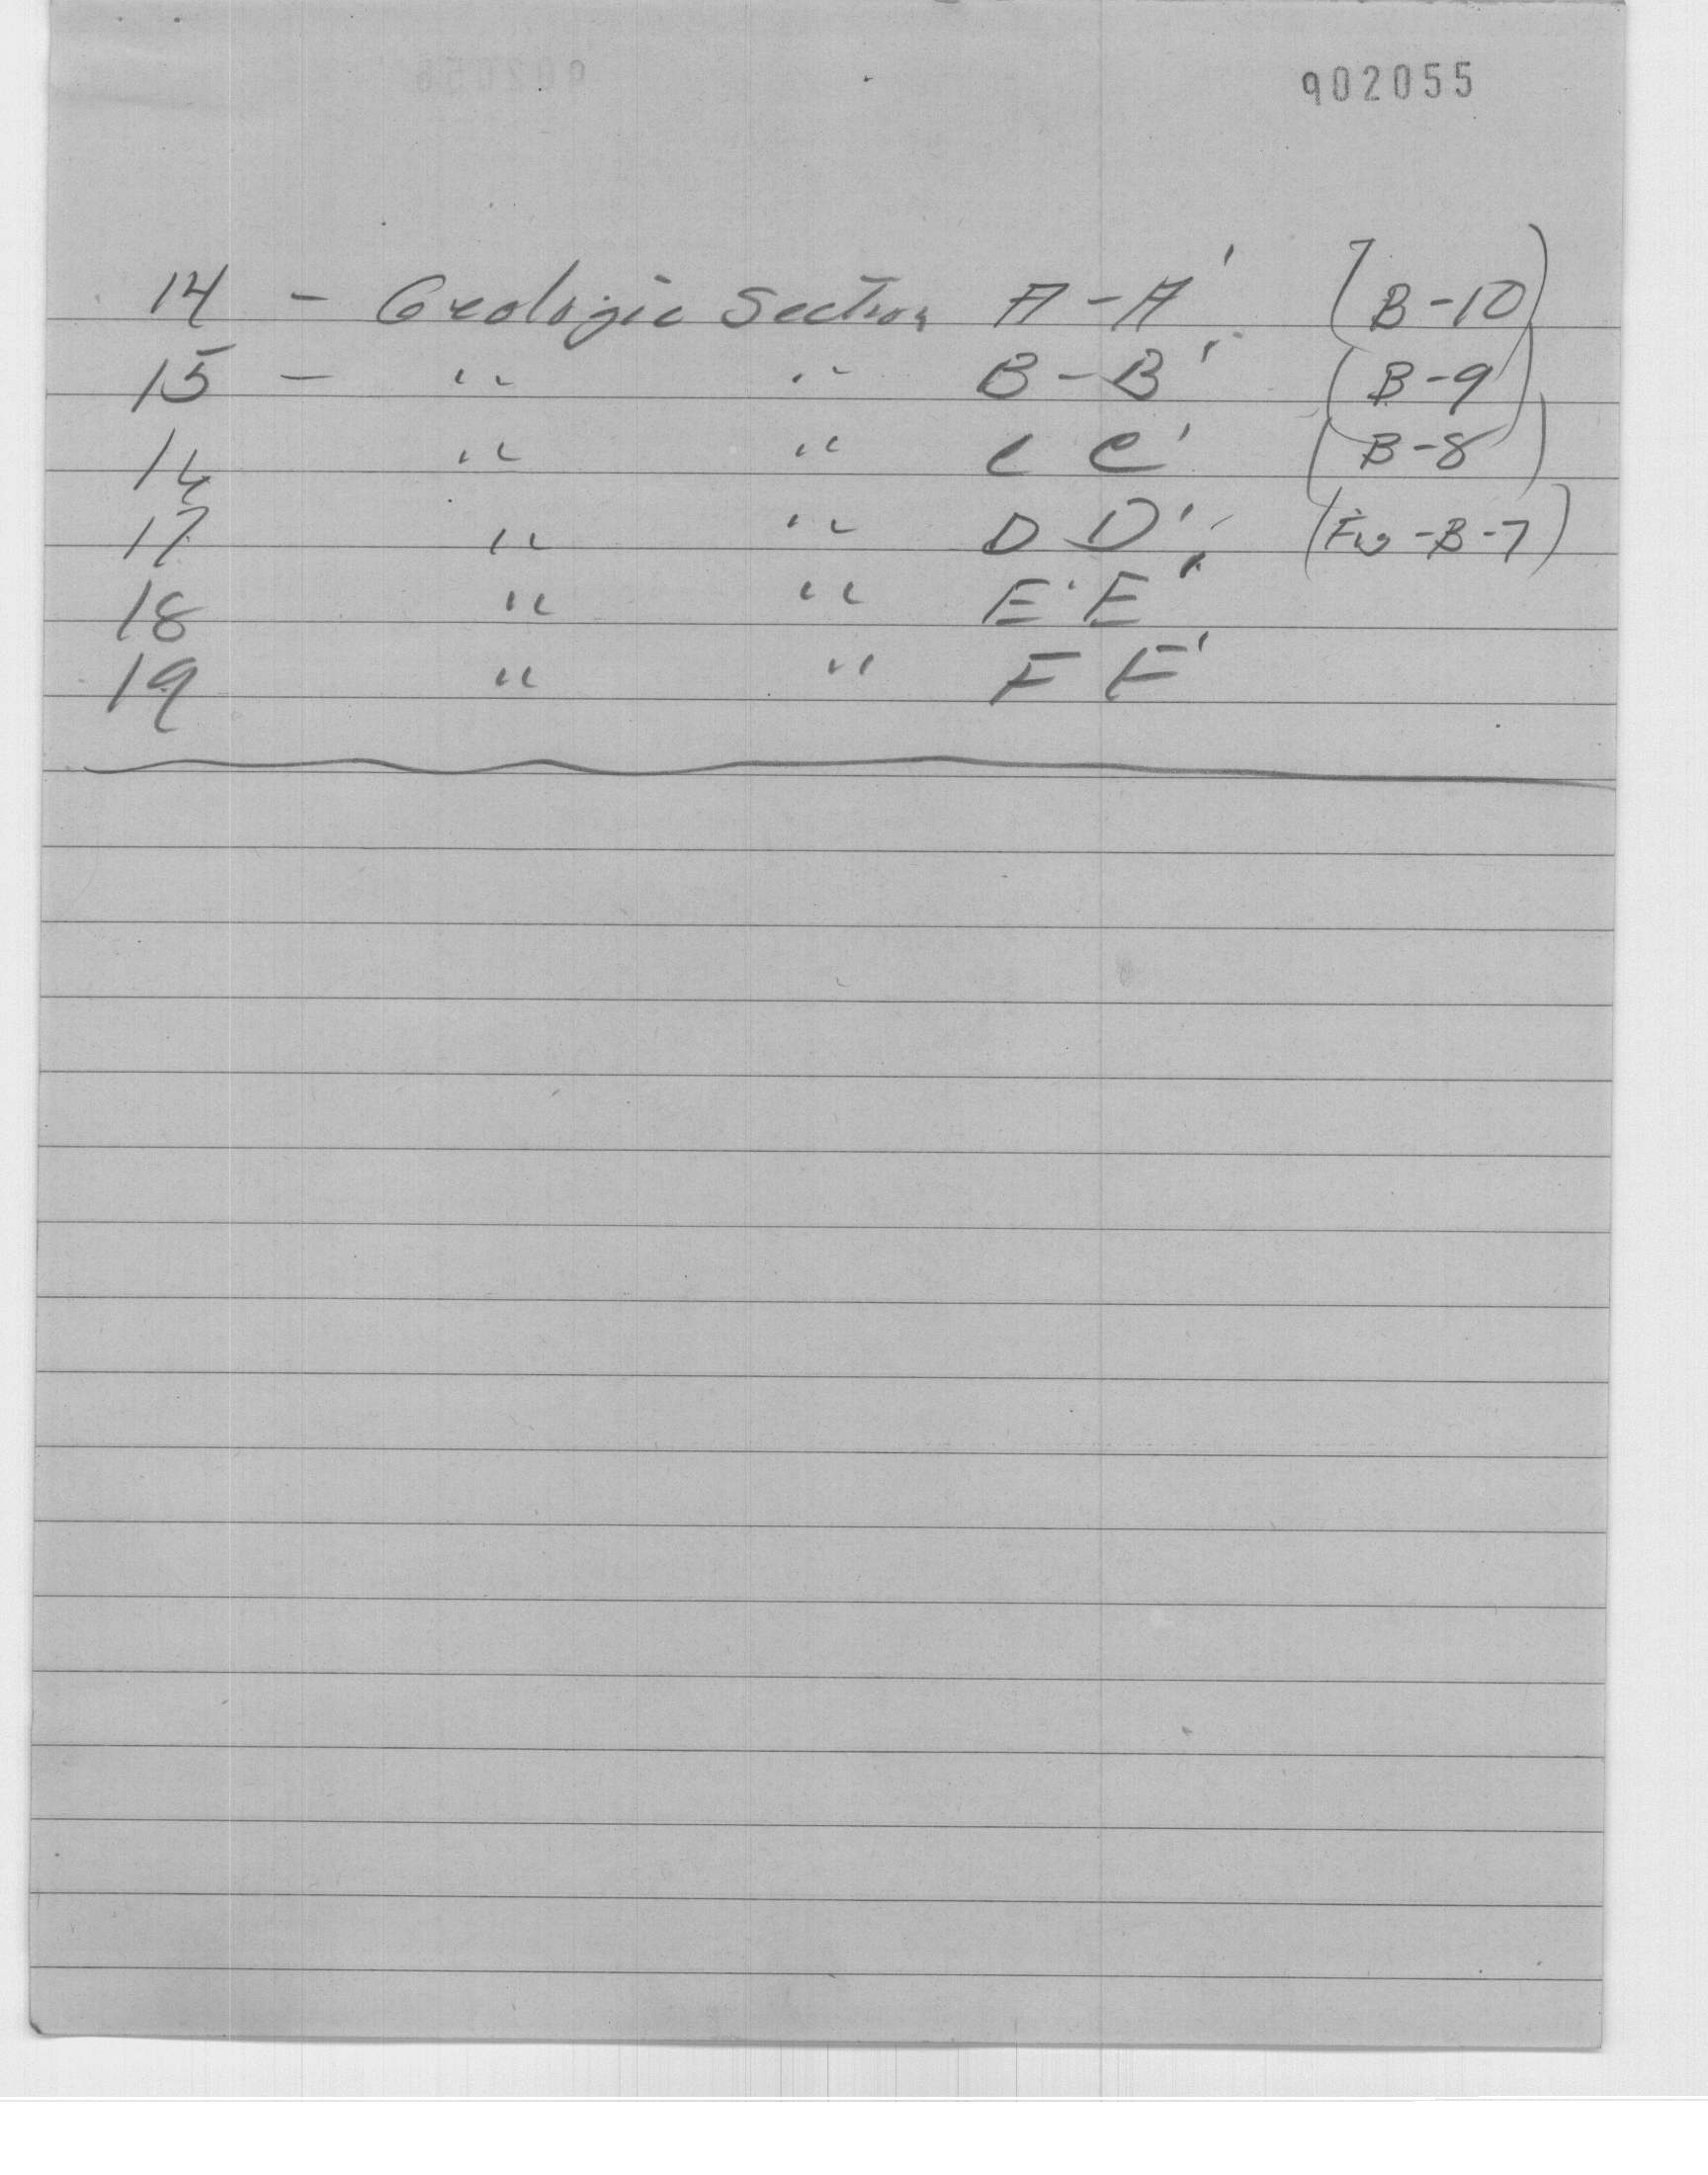 902055
14 - Geologic Section A-A' (B-10)
15 - " " B-B' (B-9)
16 " " C C' (B-8)
17 " " D D' (Fig-B-7)
18 " " E E'
19 " " F F'